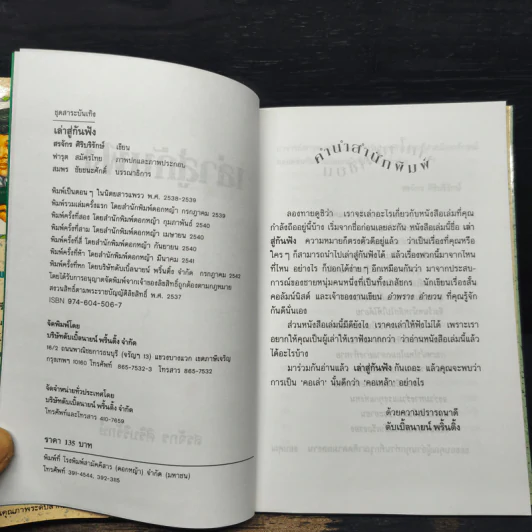 ชุดสาระบันเทิง
เล่าสู่กันฟัง
สรจักร ศิริบริรักษ์ เขียน
ฟารุต สมัครไทย ภาพปกและภาพประกอบ
สมพร ชัยธนะศักดิ์ บรรณาธิการ
พิมพ์เป็นตอน ๆ ในนิตยสารแพรว พ.ศ. 2538-2539
พิมพ์รวมเล่มครั้งแรก โดยสำนักพิมพ์ดอกหญ้า กรกฎาคม 2539
พิมพ์ครั้งที่สอง โดยสำนักพิมพ์ดอกหญ้า กุมภาพันธ์ 2540
พิมพ์ครั้งที่สาม โดยสำนักพิมพ์ดอกหญ้า เมษายน 2540
พิมพ์ครั้งที่สี่ โดยสำนักพิมพ์ดอกหญ้า กันยายน 2540
พิมพ์ครั้งที่ห้า โดยสำนักพิมพ์ดอกหญ้า มีนาคม 2541
พิมพ์ครั้งที่หก โดยบริษัทดับเบิ้ลนายน์ พริ้นติ้ง จำกัด กรกฎาคม 2542
โดยได้รับการอนุญาตจัดพิมพ์จากเจ้าของลิขสิทธิ์ถูกต้องตามกฎหมาย
สงวนสิทธิ์ตามพระราชบัญญัติลิขสิทธิ์ พ.ศ. 2537
ISBN 974-604-506-7
จัดพิมพ์โดย
บริษัทดับเบิ้ลนายน์ พริ้นติ้ง จำกัด
16/2 ถนนพาณิชยการธนบุรี (จรัญฯ 13) แขวงบางแวก เขตภาษีเจริญ
กรุงเทพฯ 10160 โทรศัพท์ 865-7532-3 โทรสาร 865-7532
จัดจำหน่ายทั่วประเทศโดย
บริษัทดับเบิ้ลนายน์ พริ้นติ้ง จำกัด
โทรศัพท์และโทรสาร 410-7659
ราคา 135 บาท
พิมพ์ที่ โรงพิมพ์สามัคคีสาร (ดอกหญ้า) จำกัด (มหาชน)
โทรศัพท์ 391-4544, 392-365
คำนำสำนักพิมพ์
ลองทายดูซิว่า เราจะเล่าอะไรเกี่ยวกับหนังสือเล่มที่คุณ
กำลังถืออยู่นี้บ้าง เริ่มจากชื่อก่อนเลยละกัน หนังสือเล่มนี้ชื่อ เล่า
สู่กันฟัง ความหมายก็ตรงตัวดีอยู่แล้ว ว่าเป็นเรื่องที่คุณหรือ
ใคร ๆ ก็สามารถนำไปเล่าสู่กันฟังได้ แล้วเรื่องพวกนี้มาจากไหน
ที่ไหน อย่างไร ก็บอกได้ง่าย ๆ อีกเหมือนกันว่า มาจากประสบ-
การณ์ของชายหนุ่มคนหนึ่งที่เป็นทั้งเภสัชกร นักเขียนเรื่องสั้น
คอลัมน์นิสต์ และเจ้าของงานเขียน อำพราง อำยวน ที่คุณรู้จัก
กันดีนั่นเอง
ส่วนหนังสือเล่มนี้มีดียังไง เราคงเล่าให้ฟังไม่ได้ เพราะเรา
อยากให้คุณเป็นผู้เล่าให้เราฟังมากกว่า ว่าอ่านหนังสือเล่มนี้แล้ว
ได้อะไรบ้าง
มาร่วมกันอ่านแล้ว เล่าสู่กันฟัง กันเถอะ แล้วคุณจะพบว่า
การเป็น 'คอเล่า' นั้นดีกว่า 'คอเหล้า' อย่างไร
ด้วยความปรารถนาดี
ดับเบิ้ลนายน์ พริ้นติ้ง